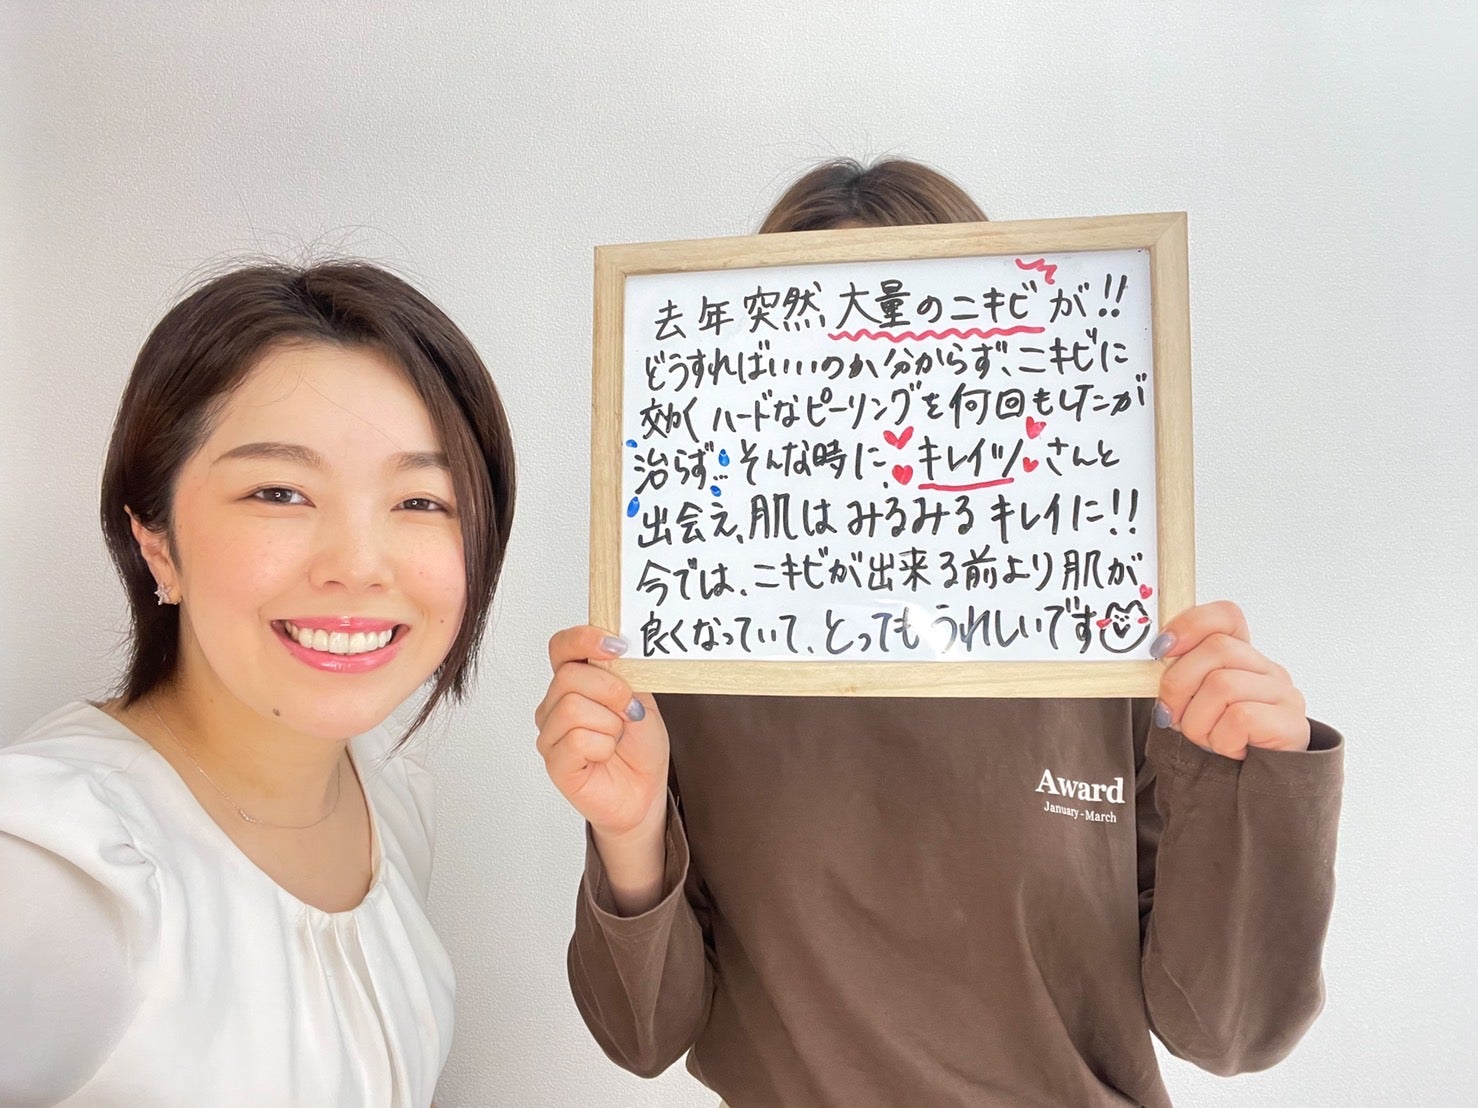 去年突然、大量のニキビが!!
どうすればいいのか分からず、ニキビに
効くハードなピーリングを何回もしたが
治らず… そんな時に、キレイツさんと
出会え、肌はみるみるキレイに!!
今では、ニキビが出来る前より肌が
良くなっていて、とってもうれしいです
Award
January - March